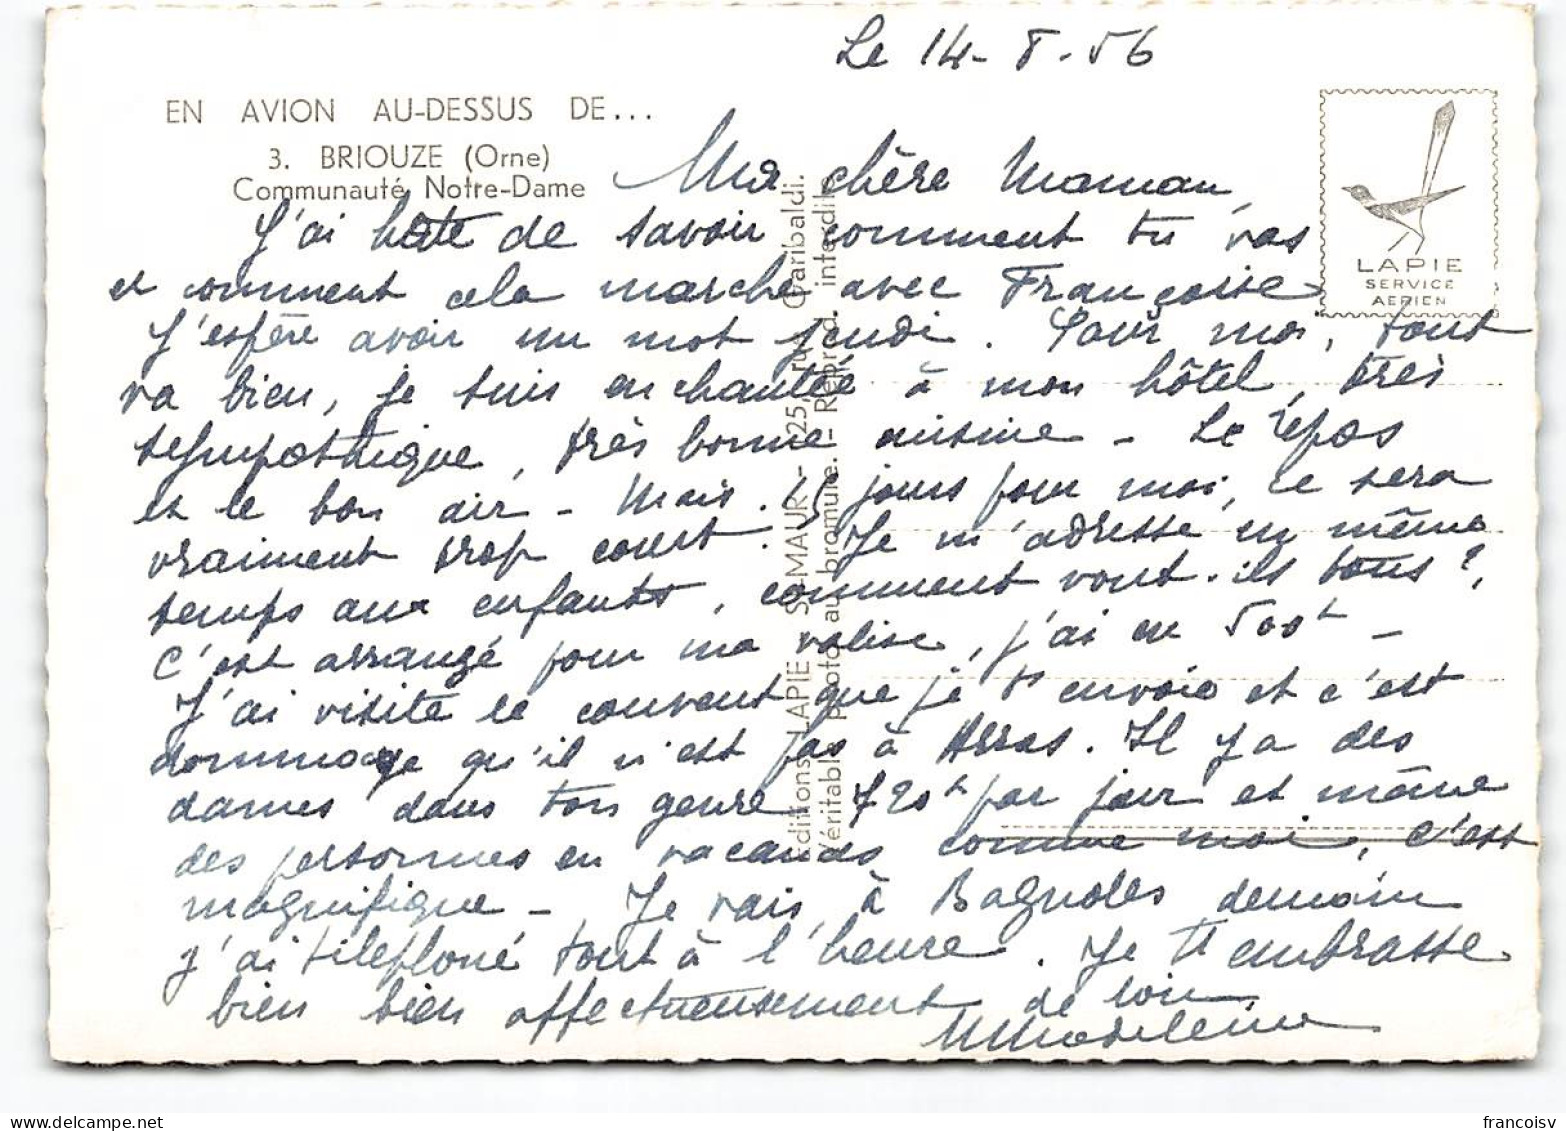 Le 14-8-56
EN AVION AU-DESSUS DE...
3. BRIOUZE (Orne)
Communauté Notre-Dame
Ma chère Maman,
J'ai hâte de savoir comment tu vas
et comment cela marche avec Françoise
J'espère avoir un mot jeudi. Pour moi, tout
va bien, je suis enchantée à mon hôtel, très
sympathique, très bonne cuisine - Le repos
et le bon air - Mais 15 jours pour moi, ce sera
vraiment trop court. Je m'adresse en même
temps aux enfants, comment vont-ils tous?,
C'est arrangé pour ma valise, j'ai eu 500f -
J'ai visité le couvent que je t'envoie et c'est
dommage qu'il n'est pas à Arras. Il y a des
dames dans ton genre 720f par jour et même
des personnes en vacances comme moi, c'est
magnifique -, Je vais à Bagnoles demain
j'ai téléphoné tout à l'heure. Je t'embrasse
bien bien affectueusement de loin,
Madeleine
LAPIE
SERVICE
AERIEN
Editions LAPIE St-MAUR - 25, rue Garibaldi.
Véritable photo au bromure. - Reprod. interdite
francoisv